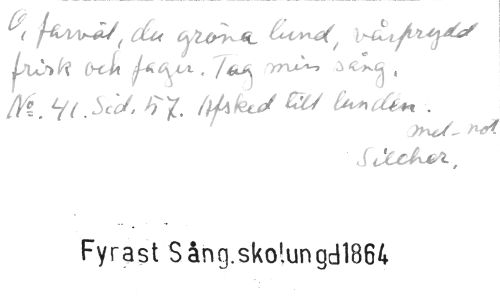 O, farväl, du gröna lund, vårprydd
frisk och fager. Tag min sång.
No. 41. Sid. 57. Afsked till lunden.
mel-not
Silcher.
Fyrast Sång.skolungd1864